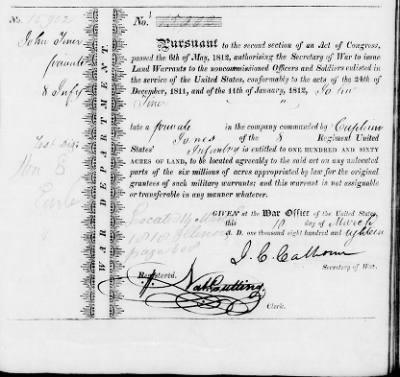 No.
John Tiner
private
8 Infy
WAR DEPARTMENT.
No.
Pursuant to the second section of an Act of Congress,
passed the 6th of May, 1812, authorising the Secretary of War to issue
Land Warrants to the noncommissioned Officers and Soldiers enlisted in
the service of the United States, conformably to the acts of the 24th of
December, 1811, and of the 11th of January, 1812, John
late a private in the company commanded by Captain
Jones of the 8 Regiment United
States' Infantry is entitled to ONE HUNDRED AND SIXTY
ACRES OF LAND, to be located agreeably to the said act on any unlocated
parts of the six millions of acres appropriated by law for the original
grantees of such military warrants; and this warrant is not assignable
or transferable in any manner whatever.
GIVEN at the War Office of the United States,
this 10 day of March
A. D. one thousand eight hundred and eighteen
J. C. Calhoun
Secretary of War.
Registered.
Nat Cutting
Clerk.